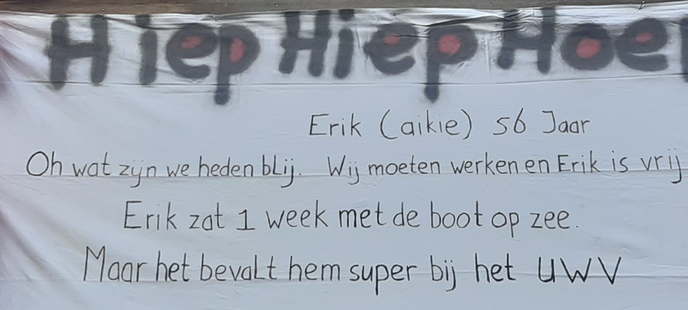 Hiep Hiep Hoe
Erik (aikie) 56 Jaar
Oh wat zijn we heden blij. Wij moeten werken en Erik is vrij
Erik zat 1 week met de boot op zee.
Maar het bevalt hem super bij het UWV